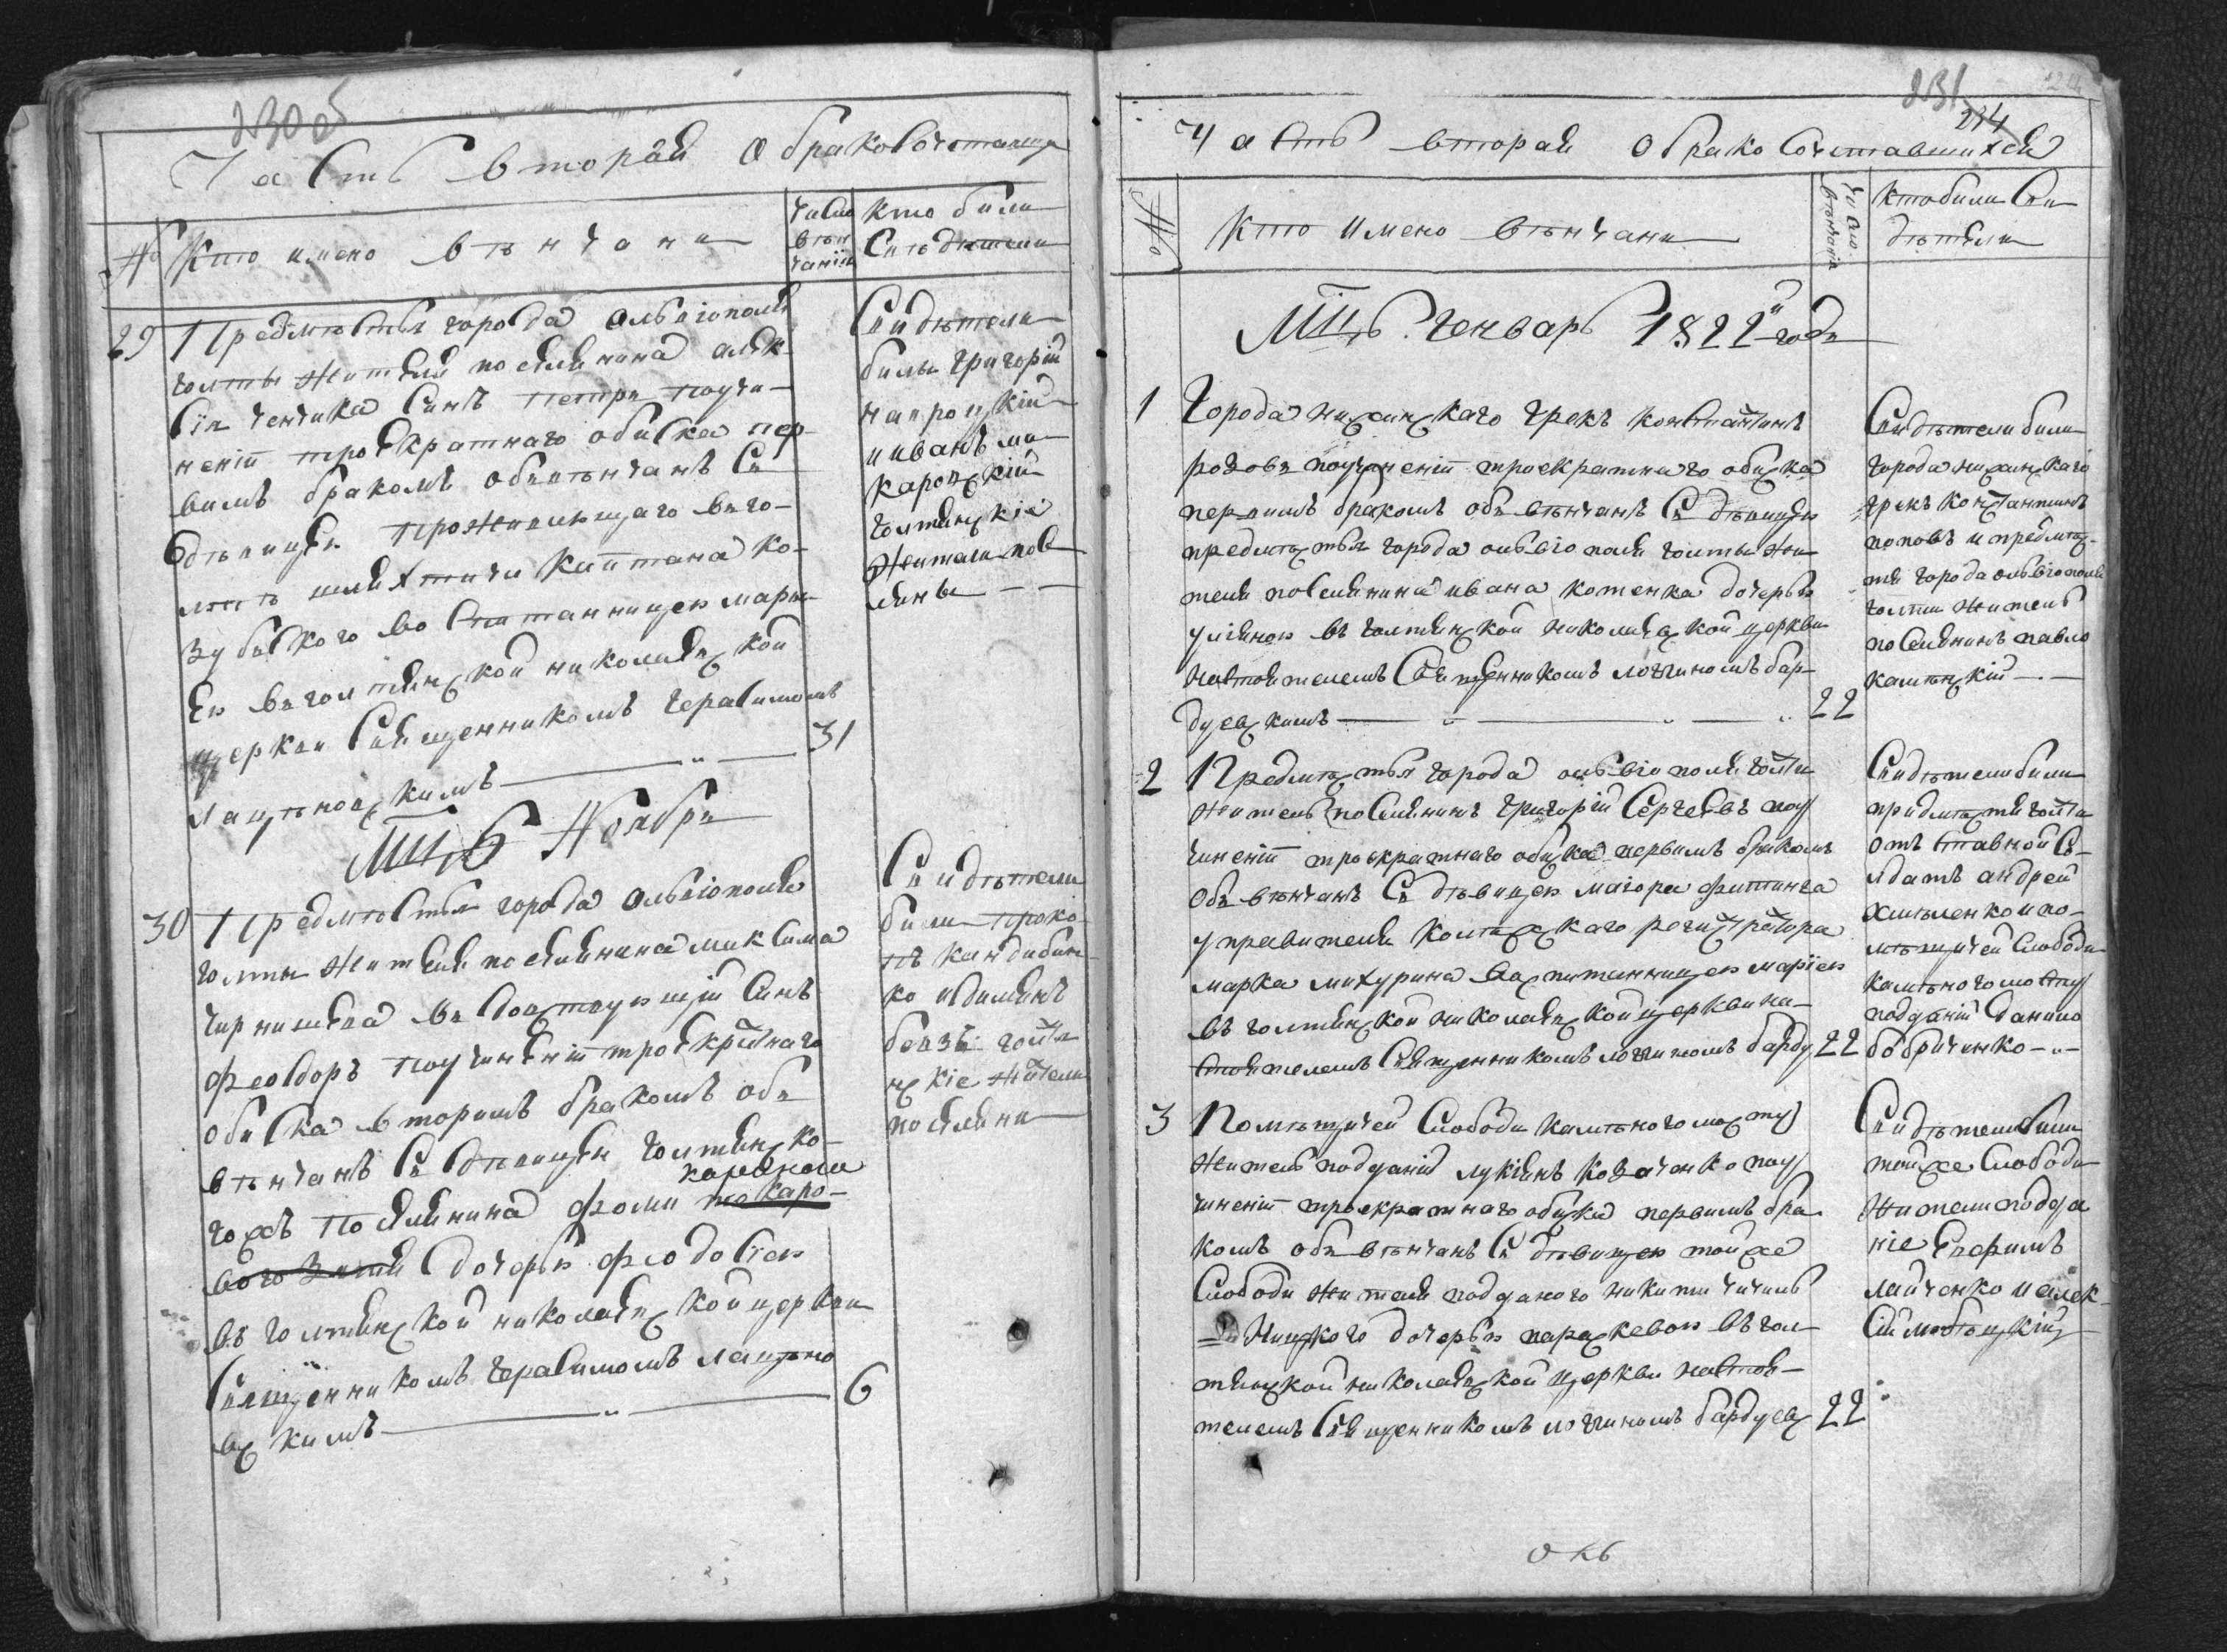 230 об
Часть вторая о бракосочетавш
№ Кто имено венчани
число венчанія
кто били Свидетели
29 Предместья города Олвіополя
голты жителя поселянина Алек
сія сынъ Петръ поучи-
неніи троекратнаго обиска пер-
вимъ бракомъ обвенчанъ Съ
девицею проживающаго въ го-
лте шляхтича Капитана Ко-
зубского воспитанницею Марі
ею въ голтянской николаевской
церкви Священникомъ Герасимомъ
Лаценовскимъ 31
Свидетели
били Григорій
и Иванъ ма
каровскій
голтянскіе
жители посе
ляне
Мцъ Ноябрь
30 Предместья города Олвіополя
голты жителя поселянина Максима
вдовствующій Синъ
Феодоръ поучиненіи троекратнаго
обиска вторимъ бракомъ об
венчанъ Съ девицею голтянско-
гожъ поселянина Фоми
дочерью Феодосіею
въ голтянской николаевской церкви
Священникомъ Герасимомъ Лацено
вскимъ 6
Свидетели
били Проко
пъ Кандибин
ко и Даміянъ
голтя
нскіе жители
поселяни
231
214
Часть вторая о бракосочетавшихся
№ Кто имено венчани
число венчанія
Кто били Сви
детели
Мцъ Генварь 1822 года
1 Города Нижинскаго грекъ Константинъ
поучиненіи троекратнаго обиска
первимъ бракомъ обвенчанъ Съ девицею
предместья города олвіополя голты жи
теля поселянина Ивана Котенка дочерью
Уліяною въ голтянской николаевской церкви
настоятелемъ Священникомъ Логгиномъ Бар-
дуевскимъ 22
Свидетели били
города Нижинскаго
грекъ Константинъ
Поповъ и предмес-
тя города олвіополя
голти житель
поселянинъ Павло
2 Предместья города олвіополя голти
житель поселянинъ Григорій Сергеевъ поу
чиненіи троекратнаго обиска первимъ бракомъ
обвенчанъ Съ девицею маіора Фитинга
управителя Коллежскаго регистратора
Марка Мижурина воспитанницею Маріею
въ голтянской николаевской церкви на-
стоятелемъ Священникомъ Логгиномъ Барду 22
Свидетели били
предместя голти
отставной со-
лдатъ Андрей
Хмеленко и по-
мещичей Слободи
Каменогомосту
подданій Данило
Бобриченко
3 Помещичей Слободи Каменогомосту
житель подданій Лукіянъ Козаченко поу
чиненіи троекратнаго обиска первимъ бра
комъ обвенчанъ Съ девицею тойже
Слободи жителя подданого Никити
дочерью Параскевою въ гол-
тянской николаевской церкви настоя-
телемъ Священникомъ Логгиномъ Бардуев 22
Свидетели били
тойже Слободи
жители подда
ніе Ефимъ
Лайченко и Алек-
сій